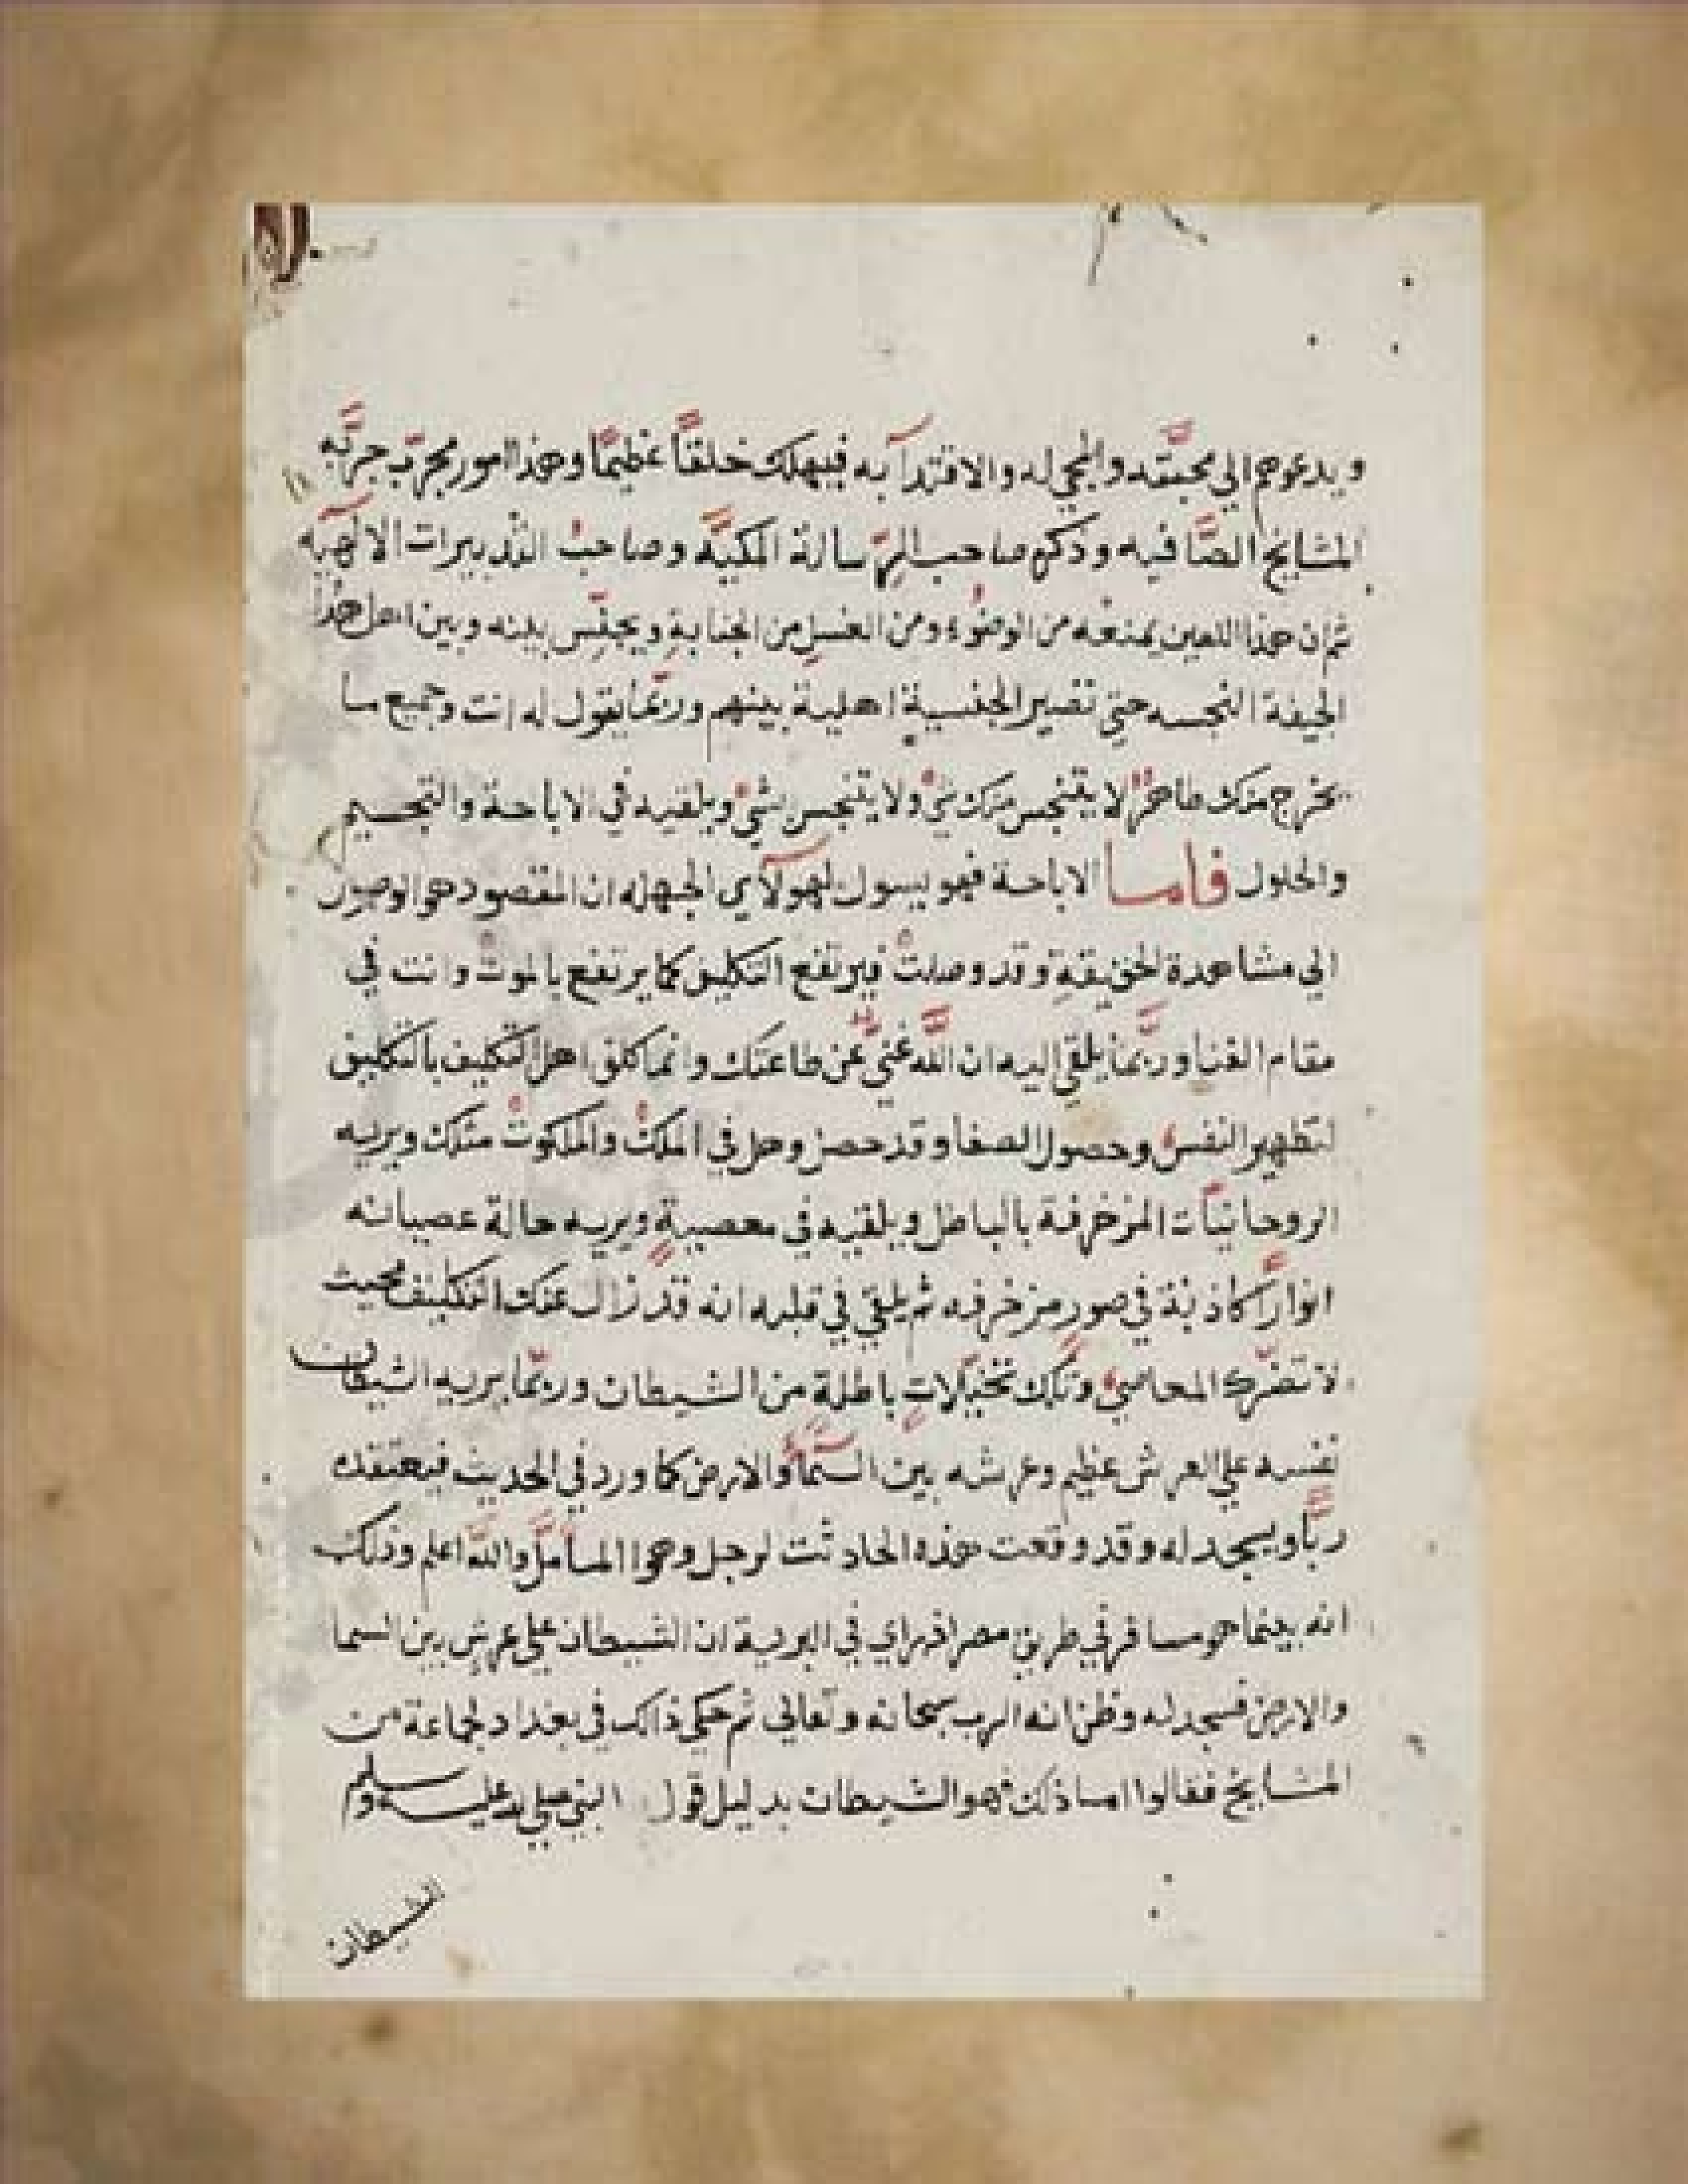 ويدعوهم الي محبته والمجي له والاقتدآ به فيهلك خلقاً عظيماً وهذا امور مجرّب جرّبه
المشايخ الصَّافيه وذكره صاحب الرّسالة المكيَّه وصاحبُ التدبيرات الالٓهيه
ثم ان هذا اللعين يمنعه من الوضُوء ومن الغسل من الجنابةِ ويجنّس بينه وبين اهل هذا
الجيفة النجسه حتي تصير الجنسية اهلية بينهم وربّما يقول له انت وجميع ما
يخرج منك طاهرٌ لا يتنجس منك شيٌ ولا يتنجس بشيٌ ويلقيه في الاباحة والتجسيم
والحلول فاما الاباحة فهو يسول لهولآي الجهله ان المقصود هو الوصول
الي مشاهدة الحقيقةِ وقد وصلتْ فيرتفع التكليف كما يرتفع بالموتْ وانت في
مقام الفنا وربَّما يلقي اليه ان اللَّه غنيٌّ عن طاعتك وانما كلف اهل التكليف بالتكليف
لتطهير النفس وحصول الصفا وقد حصل وهل في الملكْ والملكوتْ مثلك ويريه
الروحانيّات المزخرفة بالباطل ويلقيه في معصيةٍ ويريه حالة عصيانه
انواراً كاذبة في صور مزخرفه ثم يلقي في قلبه انه قد زال عنك التكليف بحيث
لا تضرّك المعاصي وتلك تخيّلاتٍ باطلة من الشيطان وربّما يريه الشيطان
نفسه علي العرش عظيم وعرشه بين السَّمآ والارض كما ورد في الحديث فيعتقده
ربّاً ويسجد له وقد وقعت هذه الحادثت لرجل وهوا المأمل واللّه اعلم وذلك
انه بينما هو مسافر في طريق مصر اذ راي في البرية ان الشيطان علي عرش بين السما
والارض فسجد له وظن انه الرب سبحانه وتعالي ثم حكي ذالك في بغداد لجماعة من
المشايخ فقالوا اما ذلك فهو الشيطان بدليل قول النبي صلي الله عليه وسلم
الشيطان